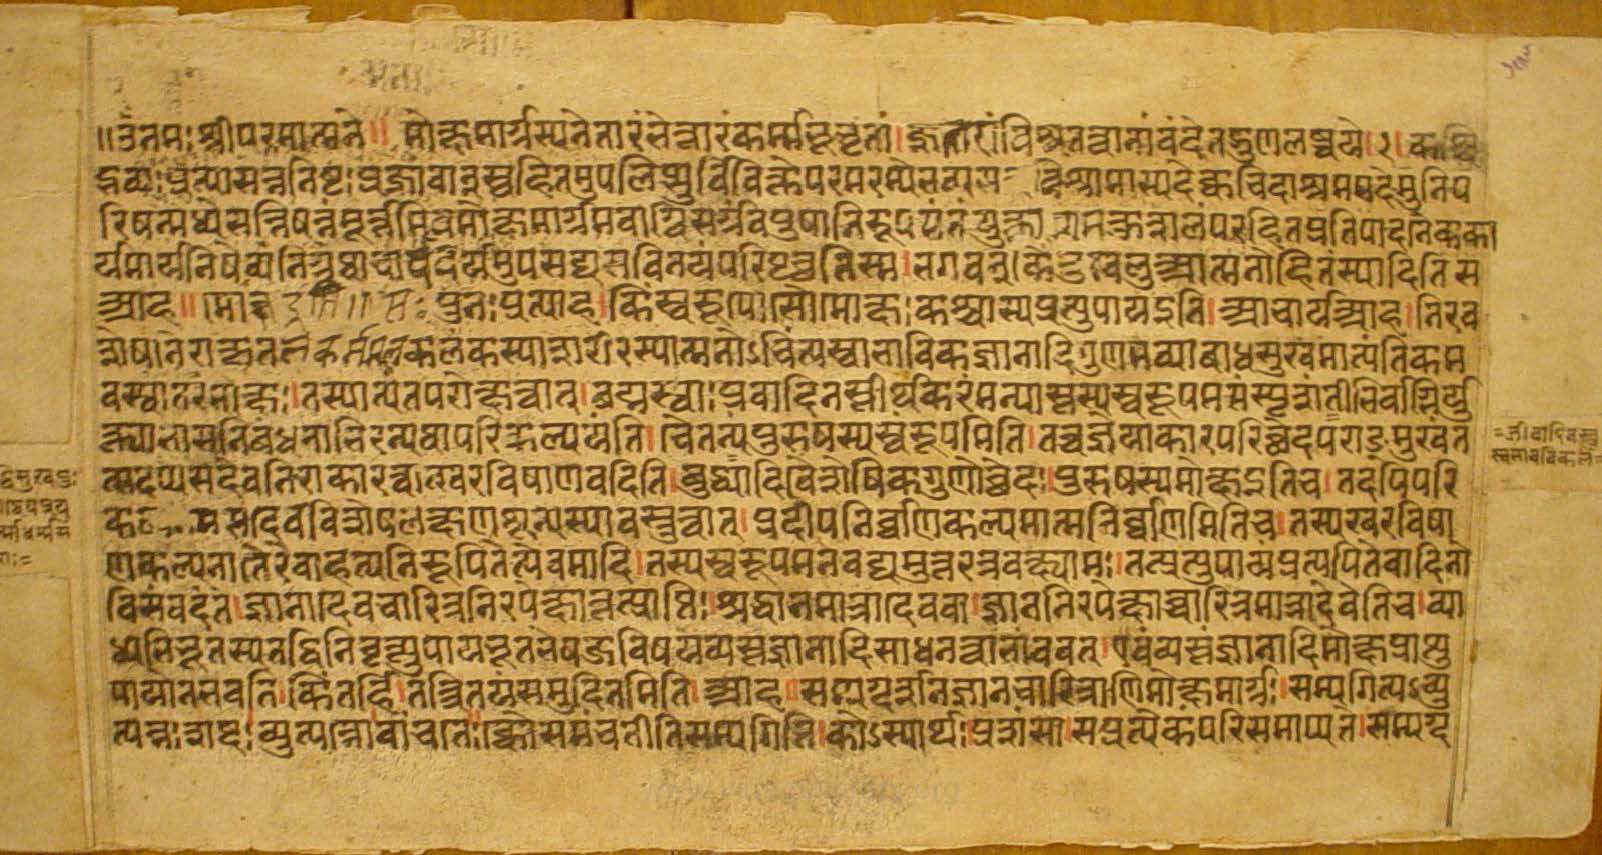 ॥उनमः श्रीपरमात्मने॥ मोक्षमार्गस्य नेतारं भेत्तारं कर्म्मभूभृतां। ज्ञातारं विश्वतत्वानां वंदे तद्गुणलब्धये।१। कश्चि
द्भव्यः प्रत्यासन्ननिष्टः प्रज्ञावान् स्वहितमुपलिप्सुर्विविक्ते परमरम्ये भव्यसत्व विश्रामास्पदे क्वचिदाश्रमपदे मुनिप
रिषन्मध्ये सन्निषन्नं मूर्त्तमिव मोक्षमार्गमवाग्विसर्गं वपुषा निरूपयंतं युक्त्यागमकुशलं परहितप्रतिपादनैकका
र्यमार्यनिषेव्यं निर्ग्रंथाचार्यवर्यमुपसद्य सविनयं परिपृच्छति स्म। भगवन् किं खलु आत्मनो हितं स्यादिति स
आह॥ मोक्ष इति॥ स पुनः प्रत्याह। किं स्वरूपोऽसौ मोक्षः कश्चास्य प्राप्त्युपाय इति। आचार्य आह। निरव
शेषनिराकृतकर्ममलकलंकस्याशरीरस्यात्मनोऽचिंत्यस्वाभाविकज्ञानादिगुणमव्याबाधसुखमात्यंतिकम
वस्थांतरं मोक्षः। तस्यात्यंतपरोक्षत्वात्। छद्मस्थाः प्रवादिनस्तीर्थकरंमन्यास्तस्य स्वरूपमसंस्पृशंतीभिर्वाग्भिर्यु
क्त्याभासनिबंधनाभिरन्यथा परिकल्पयंति। चैतन्यं पुरुषस्य स्वरूपमिति। तच्च ज्ञेयाकारपरिच्छेदपराङ्मुखं त
त्सदप्यसदेव निराकारत्वात् खरविषाणवदिति। बुद्ध्यादिवैशेषिकगुणोच्छेदः। पुरुषस्य मोक्ष इति च। तदपि परि
कल्पनमसदेव विशेषलक्षणशून्यस्यावस्तुत्वात्। प्रदीपनिर्वाणकल्पमात्मनिर्वाणमिति च। तस्य खरविषा
णकल्पना तैरेवाहत्य निरूपितेत्येवमादि। तस्य स्वरूपमनवद्यमुत्तरत्र वक्ष्यामः। तत्प्राप्त्युपायं प्रत्यपि ते वादिनो
विसंवदंते। ज्ञानादेव चारित्रनिरपेक्षात्तत्प्राप्तिः। श्रद्धानमात्रादेव वा। ज्ञाननिरपेक्षाच्चारित्रमात्रादेवेति च। व्या
ध्यभिभूतस्य तद्विनिवृत्त्युपायभूतभेषजविषयव्यस्तज्ञानादिसाधनत्वाभाववत्। एवं व्यस्तं ज्ञानादि मोक्षप्राप्त्यु
पायो न भवति। किं तर्हि। तत्त्रितयं समुदितमिति। आह। सम्यग्दर्शनज्ञानचारित्राणि मोक्षमार्गः। सम्यगित्यऽव्यु
त्पन्नः शब्दः व्युत्पन्नो वा। अंचतेः क्वौ समंचतीति सम्यगिति। कोऽस्यार्थः। प्रशंसा। स प्रत्येकं परिसमाप्यते। सम्यग्द